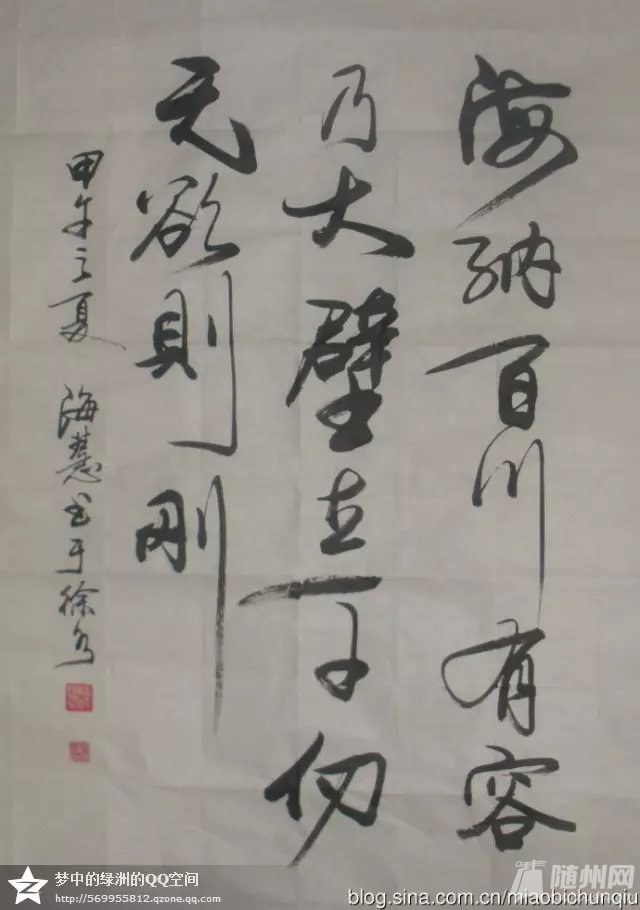 海纳百川有容
乃大壁立千仞
无欲则刚
甲午之夏 海慧书于徐水
梦中的绿洲的QQ空间
http://569955812.qzone.qq.com
随州网
blog.sina.com.cn/miaobichunqiu